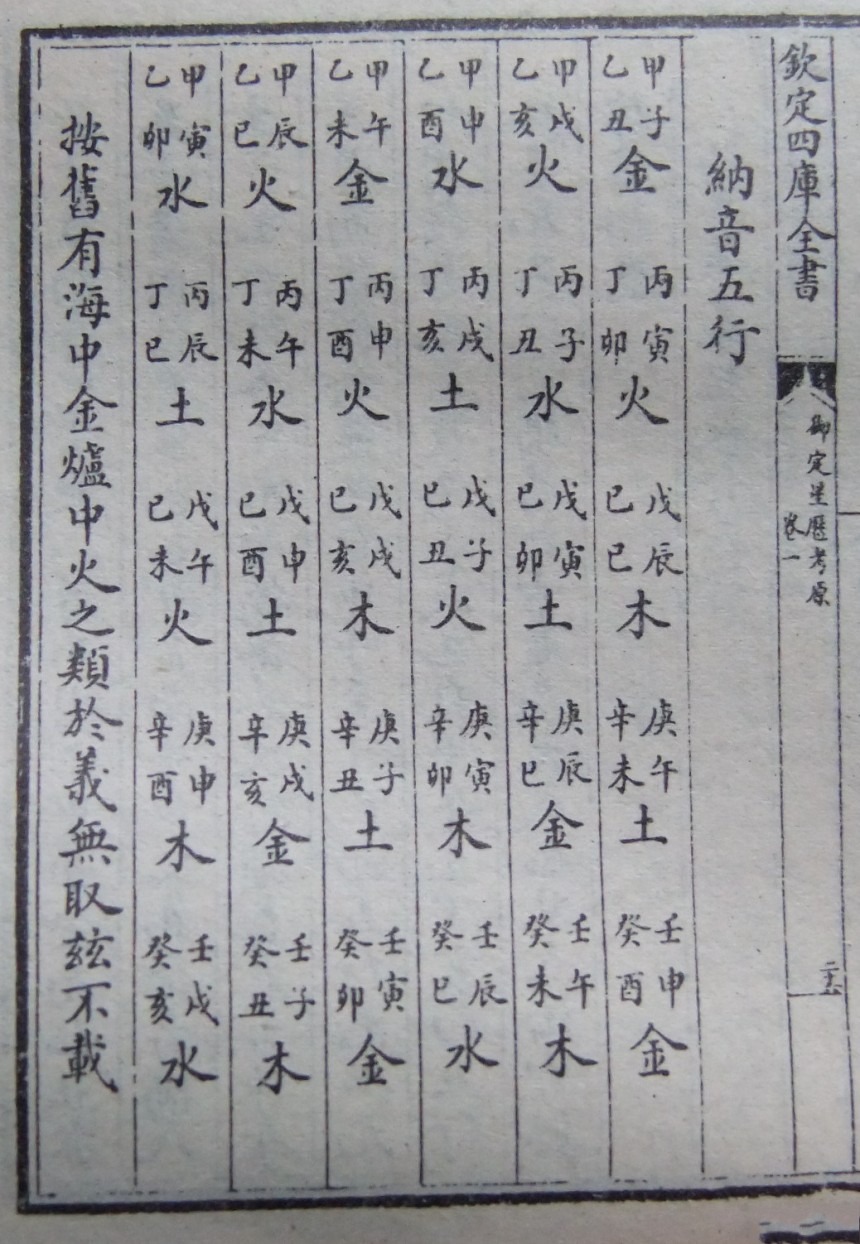 欽定四庫全書
御定星歷考原
卷一
納音五行
甲子乙丑金 丙寅丁卯火 戊辰己巳木 庚午辛未土 壬申癸酉金
甲戌乙亥火 丙子丁丑水 戊寅己卯土 庚辰辛巳金 壬午癸未木
甲申乙酉水 丙戌丁亥土 戊子己丑火 庚寅辛卯木 壬辰癸巳水
甲午乙未金 丙申丁酉火 戊戌己亥木 庚子辛丑土 壬寅癸卯金
甲辰乙巳火 丙午丁未水 戊申己酉土 庚戌辛亥金 壬子癸丑木
甲寅乙卯水 丙辰丁巳土 戊午己未火 庚申辛酉木 壬戌癸亥水
按舊有海中金爐中火之類於義無取兹不載